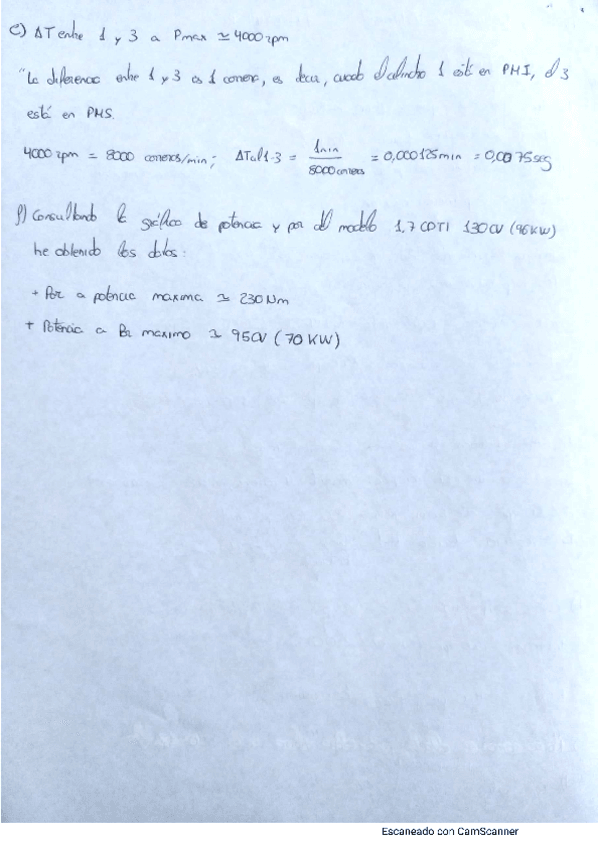 e) ΔT entre 1 y 3 a Pmax ≃ 4000 rpm
"La diferencia entre 1 y 3 es 1 carrera, es decir, cuando el cilindro 1 está en PMI, el 3
está en PMS.
4000 rpm = 8000 carreras/min; ΔT cil 1-3 = 1min / 8000 carreras = 0,000125min = 0,0075seg
f) Consultando la gráfica de potencia y par del modelo 1,7 CDTI 130CV (96KW)
he obtenido los datos:
+ Par a potencia maxima ≃ 230 Nm
+ Potencia a Par maximo ≃ 95CV (70 KW)
Escaneado con CamScanner